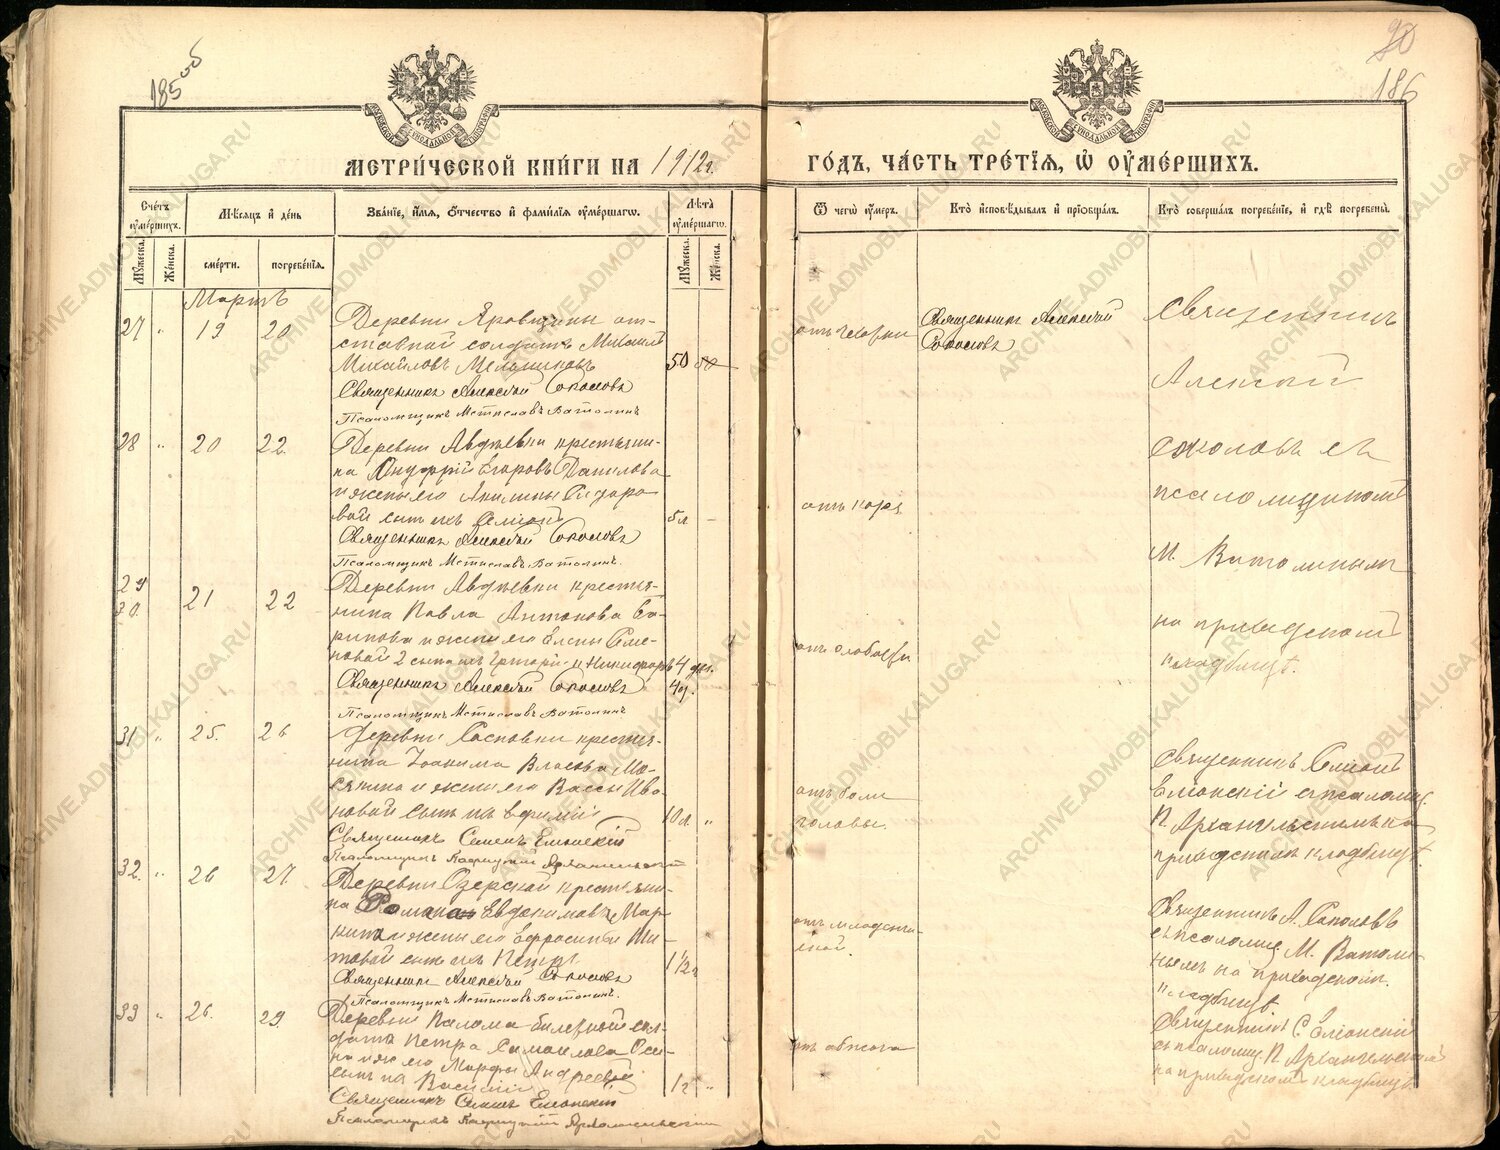 185 об
90
186
МЕТРИ́ЧЕСКОЙ КНИ́ГИ НА 1912 г.
ГО́ДЪ, ЧА́СТЬ ТРЕ́ТІЯ, Ѡ҆ ОУ҆МЕ́РШИХЪ.
Сче́тъ оу҆ме́ршихъ.
Мѣ́сяцъ и҆ де́нь
Зва́нїе, и҆́мя, ѻ҆́тчество и҆ фами́лїя оу҆ме́ршагѡ.
Лѣ́та оу҆ме́ршагѡ.
Ѿ чегѡ̀ оу҆́меръ.
Кто̀ и҆сповѣ́дывалъ и҆ прїѡбща́лъ.
Кто̀ соверша́лъ погребе́нїе, и҆ гдѣ̀ погребены̀.
Мꙋ́жеска.
Же́нска.
сме́рти.
погребе́нїя.
Мꙋ́жеска.
Же́нска.
Мартъ
27 " 19 20
Деревни Яровщины от-
ставной солдатъ Михаилъ
Михайловъ Мельниковъ
50 50
Священникъ Алексѣй Соколовъ
Псаломщикъ Мстиславъ Ватолинъ
отъ чахотки
Священникъ Алексѣй
Соколовъ
Священникъ
Алексѣй
Соколовъ съ
псаломщикомъ
М. Ватолинымъ
на приходскомъ
кладбищѣ.
28 " 20 22.
Деревни Авдѣевки крестьяни-
на Егоровъ Данилова
и жены его Акилины Сидоро
вой сынъ ихъ Симеонъ
5 л –
Священникъ Алексѣй Соколовъ
Псаломщикъ Мстиславъ Ватолинъ.
отъ кори
29
30. 21 22
Деревни Авдѣевки крестья-
нина Павла Антонова
и жены его Елены
2 сына ихъ Григорій и Никифоръ
4 дн.
4 д.
Священникъ Алексѣй Соколовъ
Псаломщикъ Мстиславъ Ватолинъ
отъ слабости
31 " 25. 26
Деревни Сосновки крестья-
нина Іоакима Власова Мо-
сягина и жены его Вассы Ива
новой сынъ ихъ Ефимій
10 л. "
Священникъ Симеонъ Елионскій
Псаломщикъ Архангельскій
отъ боли
головы.
Священникъ Симеонъ
Елионскій съ псаломщ.
П. Архангельскимъ на
приходскомъ кладбищѣ.
32. " 26 27
Деревни Озерской крестьяни-
на Романа Евдокимовъ Мар
кина и жены его Ефросиніи Ти-
товой сынъ ихъ Петръ
1 1/2 г
Священникъ Алексѣй Соколовъ
Псаломщикъ Мстиславъ Ватолинъ.
отъ младенче-
ской.
Священникъ А. Соколовъ
съ псаломщ. М. Ватоли
нымъ на приходскомъ
кладбищѣ.
33 " 26. 29.
Деревни Палома билетной сол
датъ Петра Самойлова Оси-
на и ж. его Марфы Андреевой
сынъ ихъ Василій
1/2 "
Священникъ Симеонъ Елионскій
Псаломщикъ Архангельскій
Священникъ С. Елионскій
съ псаломщ. П. Архангельскимъ
на приходскомъ кладбищѣ
ARCHIVE.ADMOBLKALUGA.RU